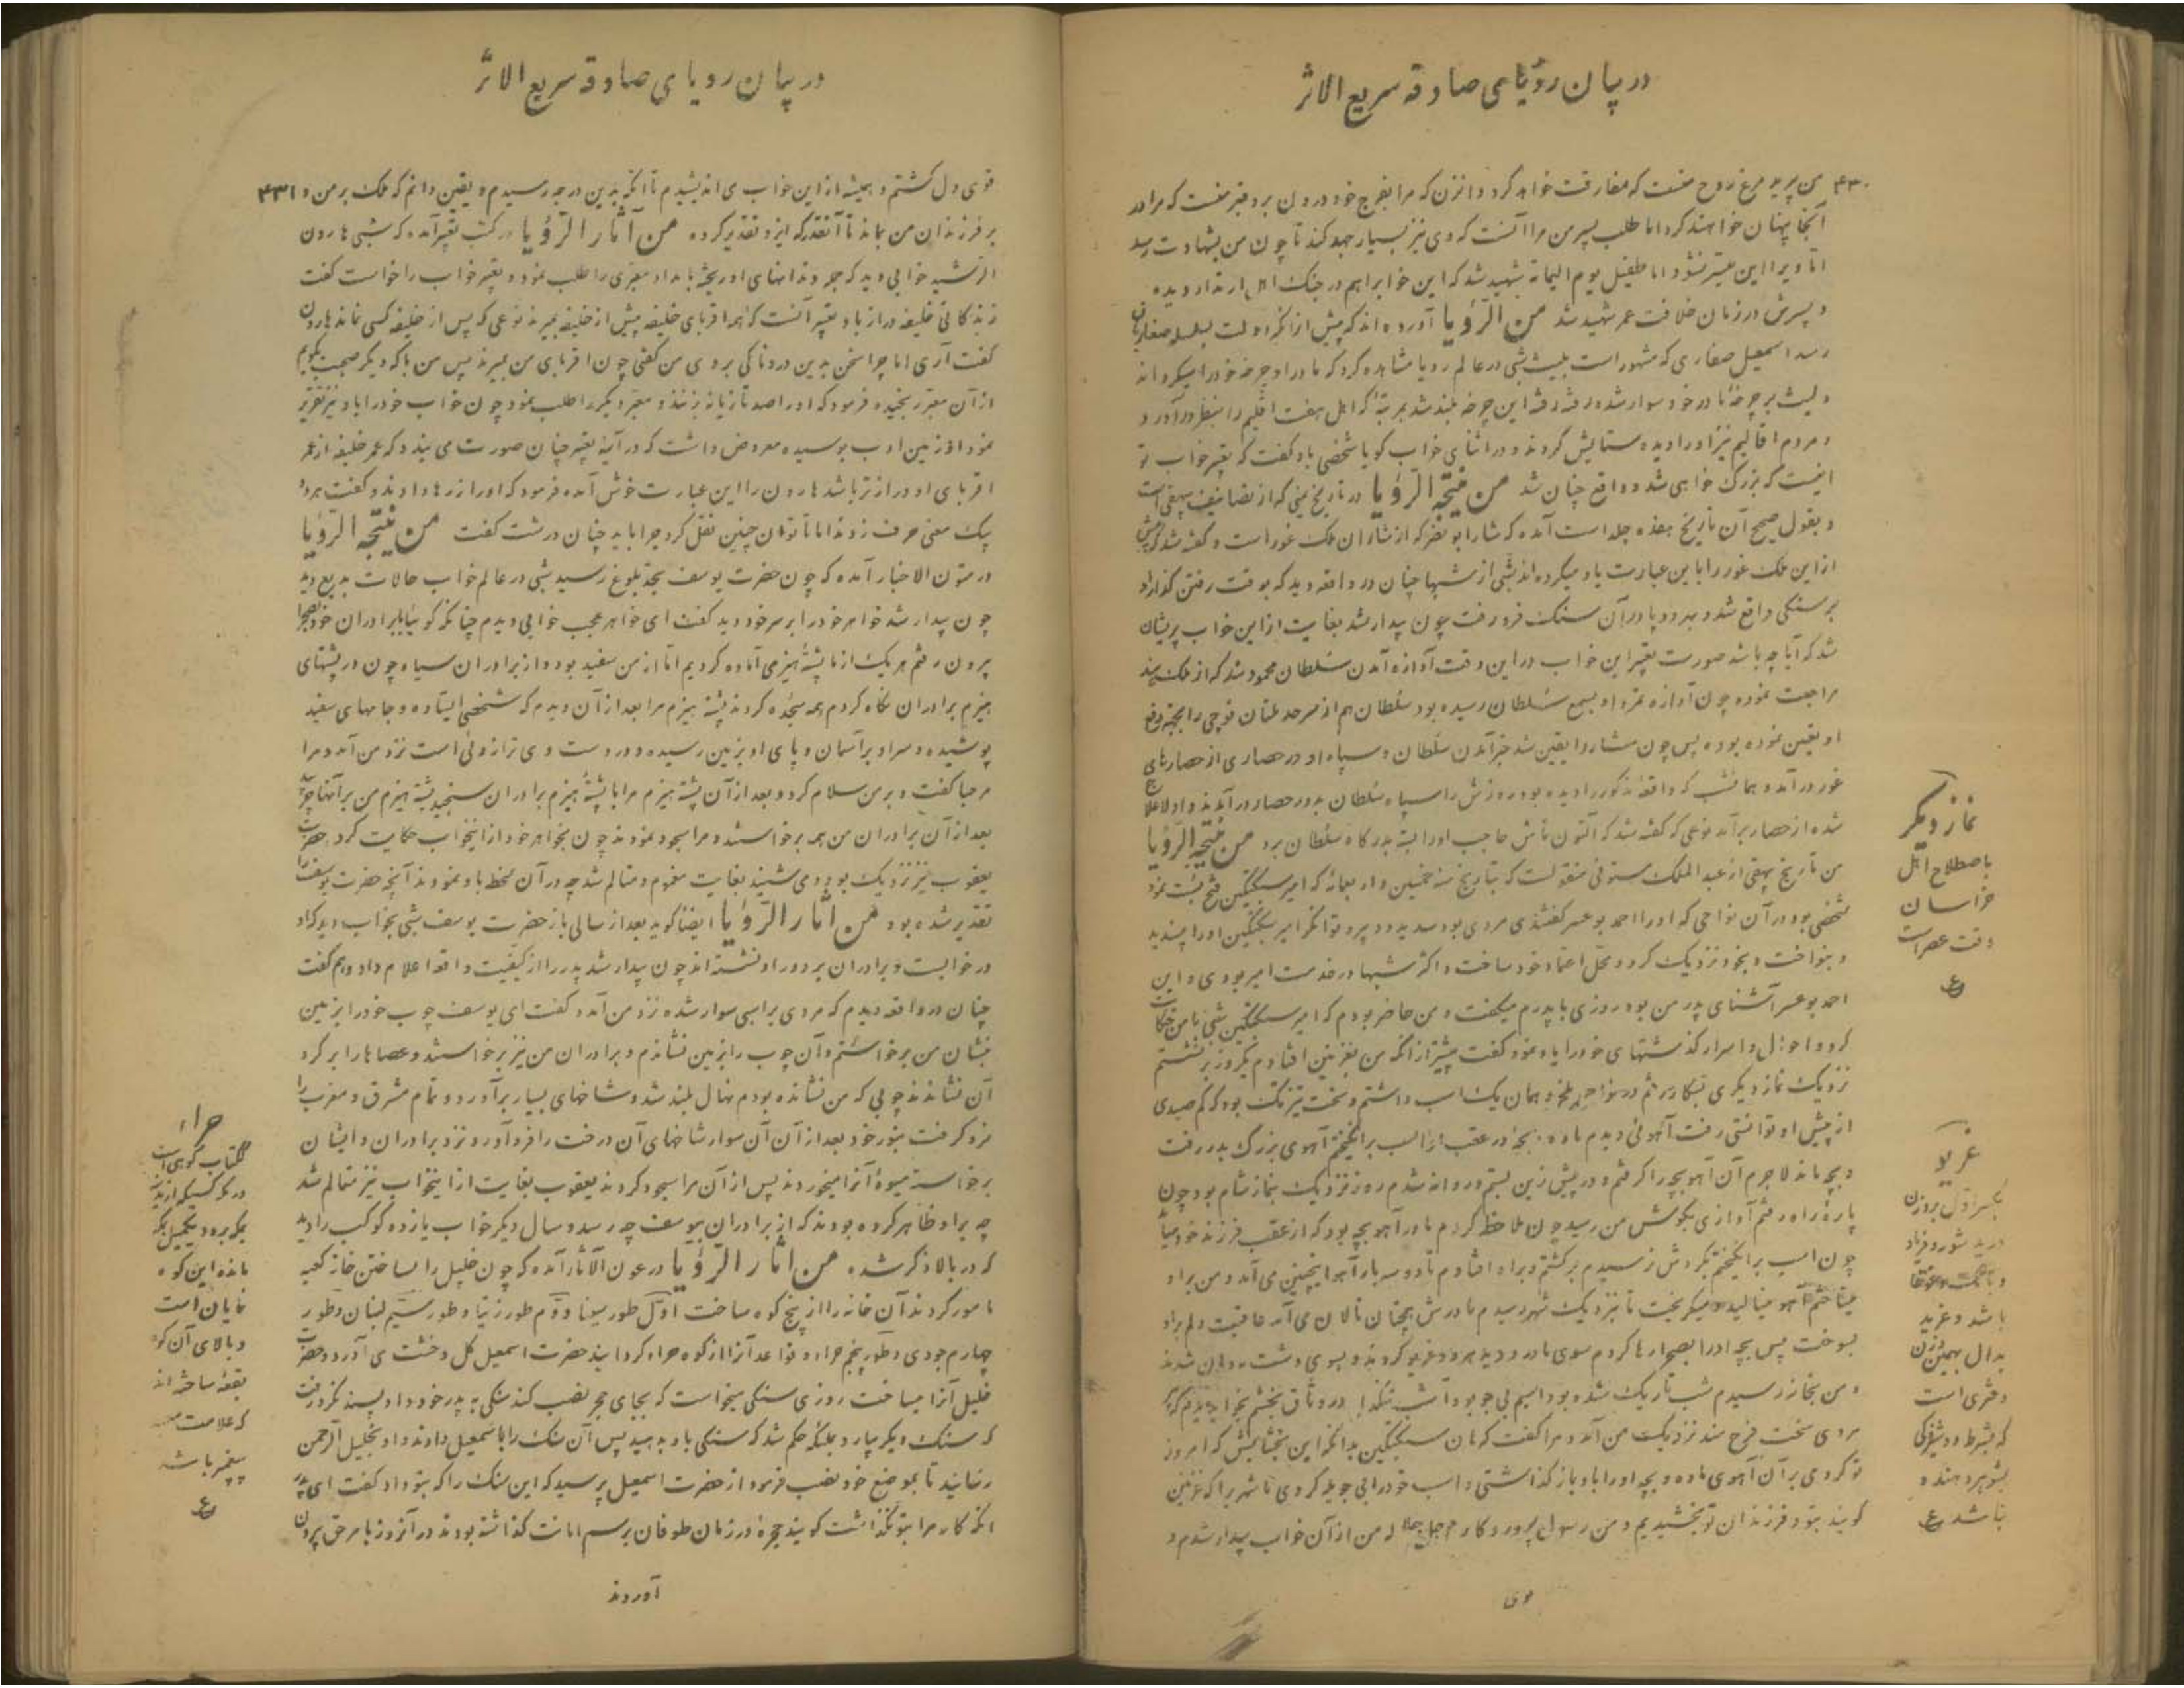 در بیان رؤیای صادقه سریع الاثر
۴۳۰
من پرید مرغ روح منست که مفارقت خواهد کرد و انزن که مرا بفرج خود درون برد قبر منست که مرا در
آنجا پنهان خواهند کرد اما طلب پسر من مرا آنست که وی نیز بسیار جهد کند تا چون من بشهادت رسد
اما ویرا این میسر نشود اما طفیل یوم الیمامه شهید شد که این خوابرا هم در جنک اهل ارتداد دیده
و پسرش در زمان خلافت عمر شهید شد من الرؤیا آورده اند که پیش از انکه دولت بسلسله صفاریان
رسد اسمعیل صفاری که مشهور است بلیث شبی در عالم رویا مشاهده کرد که مادر او چرخه خود را میکرداند
و لیث بر چرخهٔ مادر خود سوار شد رفته رفته این چرخه بلند شد بمرتبهٔ که اهل هفت اقلیم را بنظر درآورد و
و مردم اقالیم نیز او را دیده ستایش کردند و در اثنای خواب کویا شخصی باو کفت که تعبیر خواب تو
اینست که بزرک خواهی شد و واقع چنان شد من نتیجة الرؤیا در تاریخ یمنی که از تصانیف بیهقی است
و بقول صحیح آن تاریخ هفده جلد است آمده که شار ابو نصر که از شاران ملک غور است و کفته شد که پیش
از این ملک غور را باین عبارت یاد میکرده اند شبی از شبها چنان در واقعه دید که بوقت رفتن کذار او
بر سنکی واقع شد و بهر دو پا در آن سنک فرو رفت چون بیدار شد بغایت از این خواب پریشان
شد که آیا چه باشد صورت تعبیر این خواب در این وقت آوازه آمدن سلطان محمود شد که از ملک هند
مراجعت نموده چون آوازه تمرد او بسمع سلطان رسیده بود سلطان هم از سرحد ملتان فوجی را بجهة دفع
او تعیین نموده بوده پس چون مشار را یقین شد خبر آمدن سلطان و سپاه او در حصاری از حصارهای
غور درآمد و همان شب که واقعه مذکور را دیده بود روزش را سپاه سلطان بدور حصار درآمدند و او لاعلاج
شده از حصار برآمد نوعی که کفته شد که التون تاش حاجب او را بسته بدرکاه سلطان برد من نتیجة الرؤیا
من تاریخ بیهقی از عبد الملک مستوفی منقولست که بتاریخ سنه خمسین و اربعمائه که امیر سبکتکین فتح بست نمود
شخصی بود در آن نواحی که او را احمد بوعمر کفتندی مردی بود سدید و پیر و توانکر امیر سبکتکین او را پسندید
و بنواخت و بخود نزدیک کرد و محل اعتماد خود ساخت و اکثر شبها در خدمت امیر بودی و این
احمد بوعمر آشنای پدر من بود روزی با پدرم میکفت و من حاضر بودم که امیر سبکتکین شبی با من حکایت
کرد و احوال و اسرار کذشتهای خود را یاد نمود کفت پیشتر از انکه من بغزنین افتادم یکروز برنشستم
نزدیک نماز دیکری بشکار رفتم در نواحی بلخ و همان یک اسب داشتم و سخت تیز تک بود که کم صیدی
از پیش او توانستی رفت آهوئی دیدم ماده و بچه در عقب او اسب برانکیختم آهوی بزرک بدر رفت
و بچه ماند لاجرم آن آهو بچه را کرفتم و در پیش زین بستم و روانه شدم روز نزدیک بنماز شام بود چون
پارهٔ راه رفتم آوازی بکوش من رسید چون ملاحظه کردم مادر آهو بچه بود که از عقب فرزند خود میآید
چون اسب برانکیختم بکردش نرسیدم برکشتم و براه افتادم تا دو سه بار آهو اینچنین می آمد و من براو
میتاختم آهو مینالید و میکریخت تا بنزدیک شهر رسیدم مادرش همچنان نالان می آمد عاقبت دلم براو
بسوخت پس بچه او را بصحرا رها کردم سوی مادر دوید هر دو غریو کردند و بسوی دشت روان شدند
و من بخانه رسیدم شب تاریک شده بود اسبم بی جو بود
مردی سخت فرح مند نزدیک من آمد و مرا کفت که هان سبکتکین بدانکه این بخشایش که امروز
تو کردی بر آن آهوی ماده و بچه او را باو باز کذاشتی و اسب خود را بی جو یله کردی ما شهر را که غزنین
کویند بتو و فرزندان تو بخشیدیم و من رسول پروردکارم جل جلاله من از آن خواب بیدار شدم و
قوی
نماز دیکر
باصطلاح اهل
خراسان
وقت عصر است
ع
غریو
بکسر اول بروزن
درید شور و فریاد
باشد و غرید
بدال بهمین وزن
دختری است
که بشرط دوشیزکی
بشوهر دهند و
نباشد ع
در بیان رویای صادقه سریع الاثر
۴۳۱
قوی دل کشتم و همیشه از این خواب می اندیشیدم تا انکه بدین درجه رسیدم و یقین دانم که ملک بر من و
بر فرزندان من بماند تا آنقدر که ایزد تقدیر کرده من آثار الرؤیا در کتب تعبیر آمده که شبی هارون
الرشید خوابی دید که جمله دندانهای او ریخته بامداد معبری را طلب نمود و تعبیر خواب را خواست کفت
زندکانی خلیفه دراز باد تعبیر آنست که همه اقربای خلیفه پیش از خلیفه بمیرند نوعی که پس از خلیفه کسی نماند هارون
کفت آری اما چرا سخن بدین دردناکی بروی من کفتی چون اقربای من بمیرند پس من با که دیکر صحبت بکویم
از آن معبر رنجیده فرمود که او را صد تازیانه بزنند و معبر دیکر را طلب نمود چون خواب خود را باو نیز تقریر
نمود او زمین ادب بوسیده معروض داشت که در آینه تعبیر چنان صورت می بندد که عمر خلیفه از عمر
اقربای او درازتر باشد هارون را این عبارت خوش آمده فرمود که او را زرها دادند و کفت هردو
یک معنی حرف زدند اما تا توان چنین نقل کرد چرا باید چنان درشت کفت من نتیجة الرؤیا
در متون الاخبار آمده که چون حضرت یوسف بحد بلوغ رسید شبی در عالم خواب حالات بدیع دید
چون بیدار شد خواهر خود را بر سر خود دید کفت ای خواهر عجب خوابی دیدم چنانکه کوئیا با برادران خود بصحرا
بیرون رفتم هر یک از ما پشتهٔ هیزمی آماده کردیم اما از من سفید بود و از برادران سیاه چون در پشتهای
هیزم برادران نکاه کردم همه سجده کردند پشته هیزم مرا بعد از آن دیدم که شخصی ایستاده و جامهای سفید
پوشیده و سر او بر آسمان و پای او بزمین رسیده و در دست وی ترازوئی است نزد من آمد و مرا
مرحبا کفت و بر من سلام کرد و بعد از آن پشته هیزم مرا با پشتهٔ هیزم برادران سنجید پشته هیزم من بر آنها چربید
بعد از آن برادران من همه برخاستند و مرا سجود نمودند چون بخواهر خود از اینخواب حکایت کرد حضرت
یعقوب نیز نزدیک بود و می شنید بغایت مغموم و متالم شد چه در آن لحظه باو نمودند آنچه حضرت یوسف را
تقدیر شده بود من اثار الرؤیا ایضا کوید بعد از سالی باز حضرت یوسف شبی بخواب دید که او
در خوابست و برادران بر دور او نشسته اند چون بیدار شد پدر را از کیفیت واقعه اعلام داد و هم کفت
چنان در واقعه دیدم که مردی براسبی سوار شده نزد من آمد و کفت ای یوسف چوب خود را بزمین
بنشان من برخواستم و آن چوب را بزمین نشاندم و برادران من نیز برخواستند و عصاها را بر کرد
آن نشاندند چوبی که من نشانده بودم نهال بلند شد و شاخهای بسیار برآورد و تمام مشرق و مغرب را
فرو کرفت بنور خود بعد از آن آن سوار شاخهای آن درخت را فرو آورد و نزد برادران و ایشان
برخاسته میوهٔ آنرا میخوردند پس از آن مرا سجود کردند یعقوب بغایت از اینخواب نیز متالم شد
چه براو ظاهر کرده بودند که از برادران بیوسف چه رسد و سال دیکر خواب یازده کوکب را دید
که در بالا ذکر شده من اثار الرؤیا در عون الآثار آمده که چون خلیل را بساختن خانه کعبه
مامور کردند آن خانه را از پنج کوه ساخت اول طور سینا دوم طور زیتا و طور سیم لبنان و طور
چهارم جودی و طور پنجم حراء و قواعد آنرا از کوه حراء کردانید حضرت اسمعیل کل و خشت می آورد و حضرت
خلیل آنرا میساخت روزی سنکی میخواست که بجای حجر نصب کند سنکی به پدر خود داد پسند نکرد رفت
که سنک دیکر بیارد بملئکه حکم شد که سنکی باو بدهید پس آن سنک را باسمعیل دادند و او بخلیل الرحمن
رسانید تا بموضع خود نصب فرمود از حضرت اسمعیل پرسید که این سنک را که بتو داد کفت ای پدر
انکه کار مرا بتو نکذاشت کویند حجره در زمان طوفان برسم امانت کذاشته بودند در آنروز بامر حق بیرون
آوردند
حراء
ککتاب کوهی است
نمایان است
و بالای آن کوه
بقعهٔ ساخته اند
که علامت
پیغمبر باشد
ع